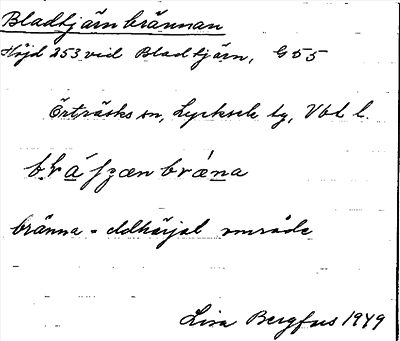 Bladtjärnbrännan
Höjd 253 vid Bladtjärn, G 55
Örträsks sn, Lycksele tg, Vbt l.
bränna = eldhärjat område
Lisa Bergfors 1949